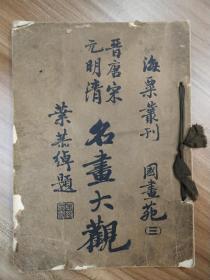 海粟叢刊 國畫苑（三）
晉唐宋
元明清
名畫大觀
葉恭綽題